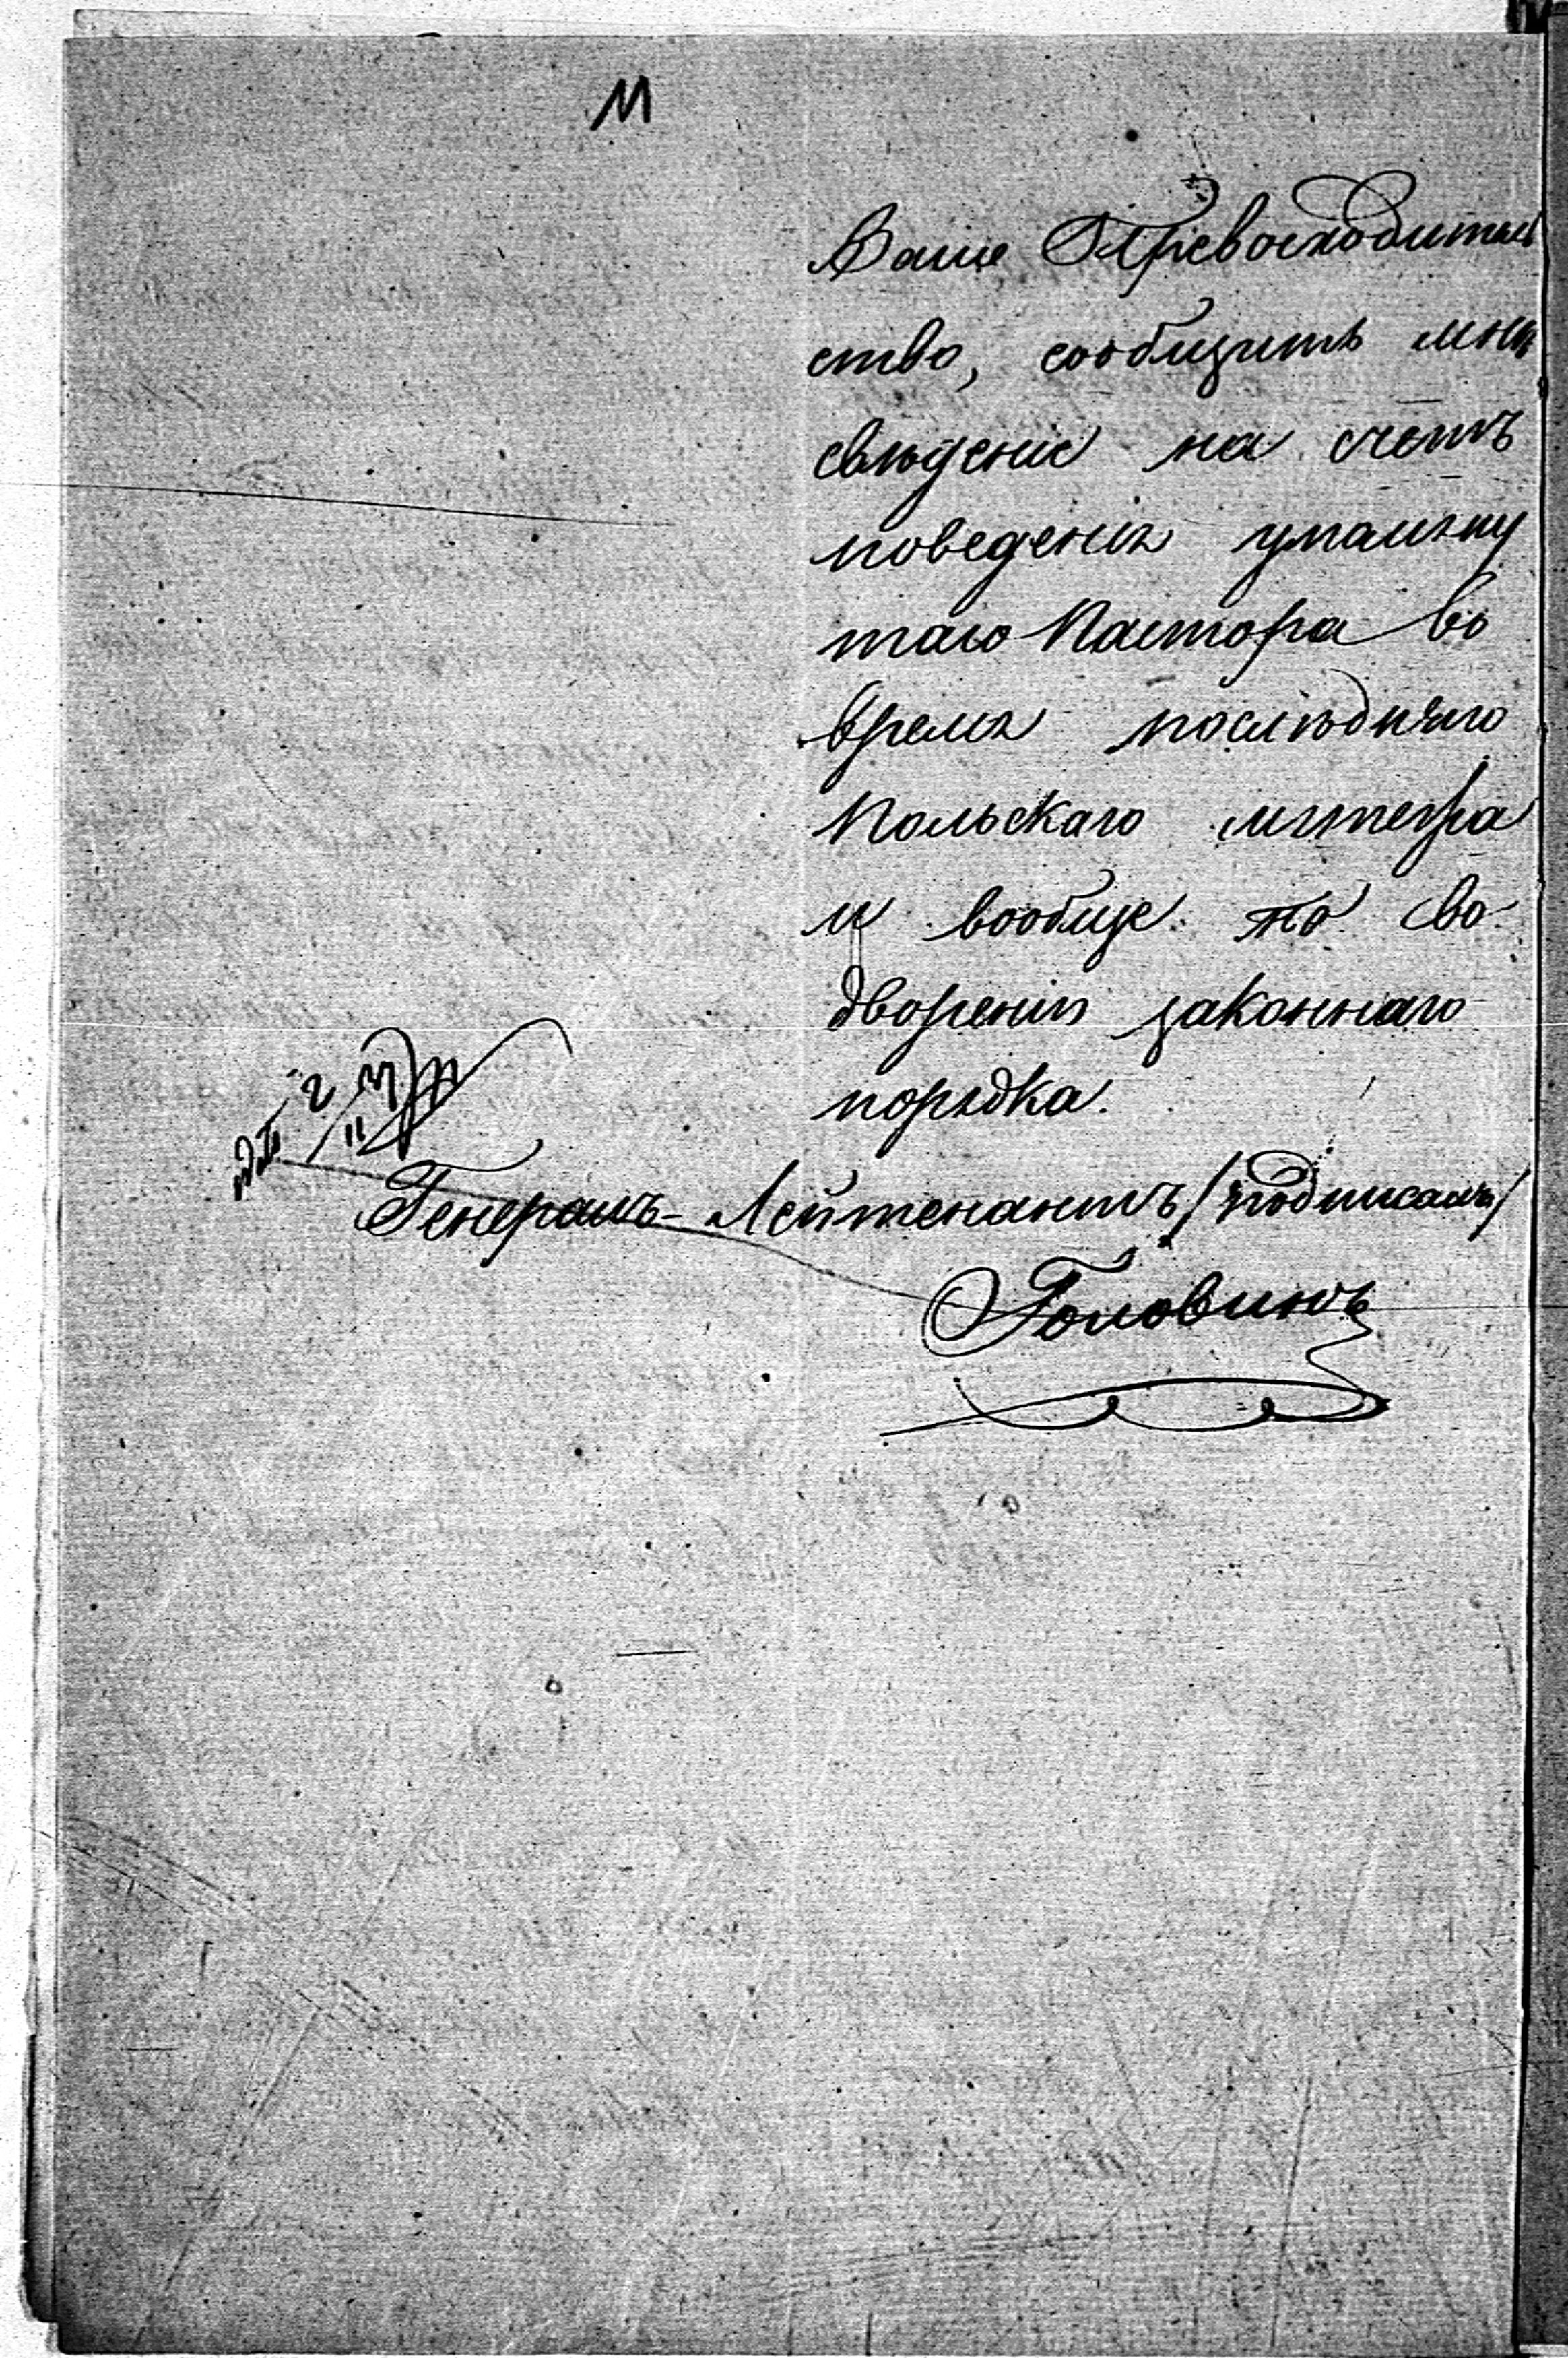 М
Ваше Превосходитель
ство, сообщить мнѣ
свѣденіе на счетъ
поведенія упомяну
таго Пастора во
время послѣдняго
Польскаго мятежа
и вообще по во-
двореніи законнаго
порядка.
Генералъ-Лейтенантъ /подписалъ/
Головинъ